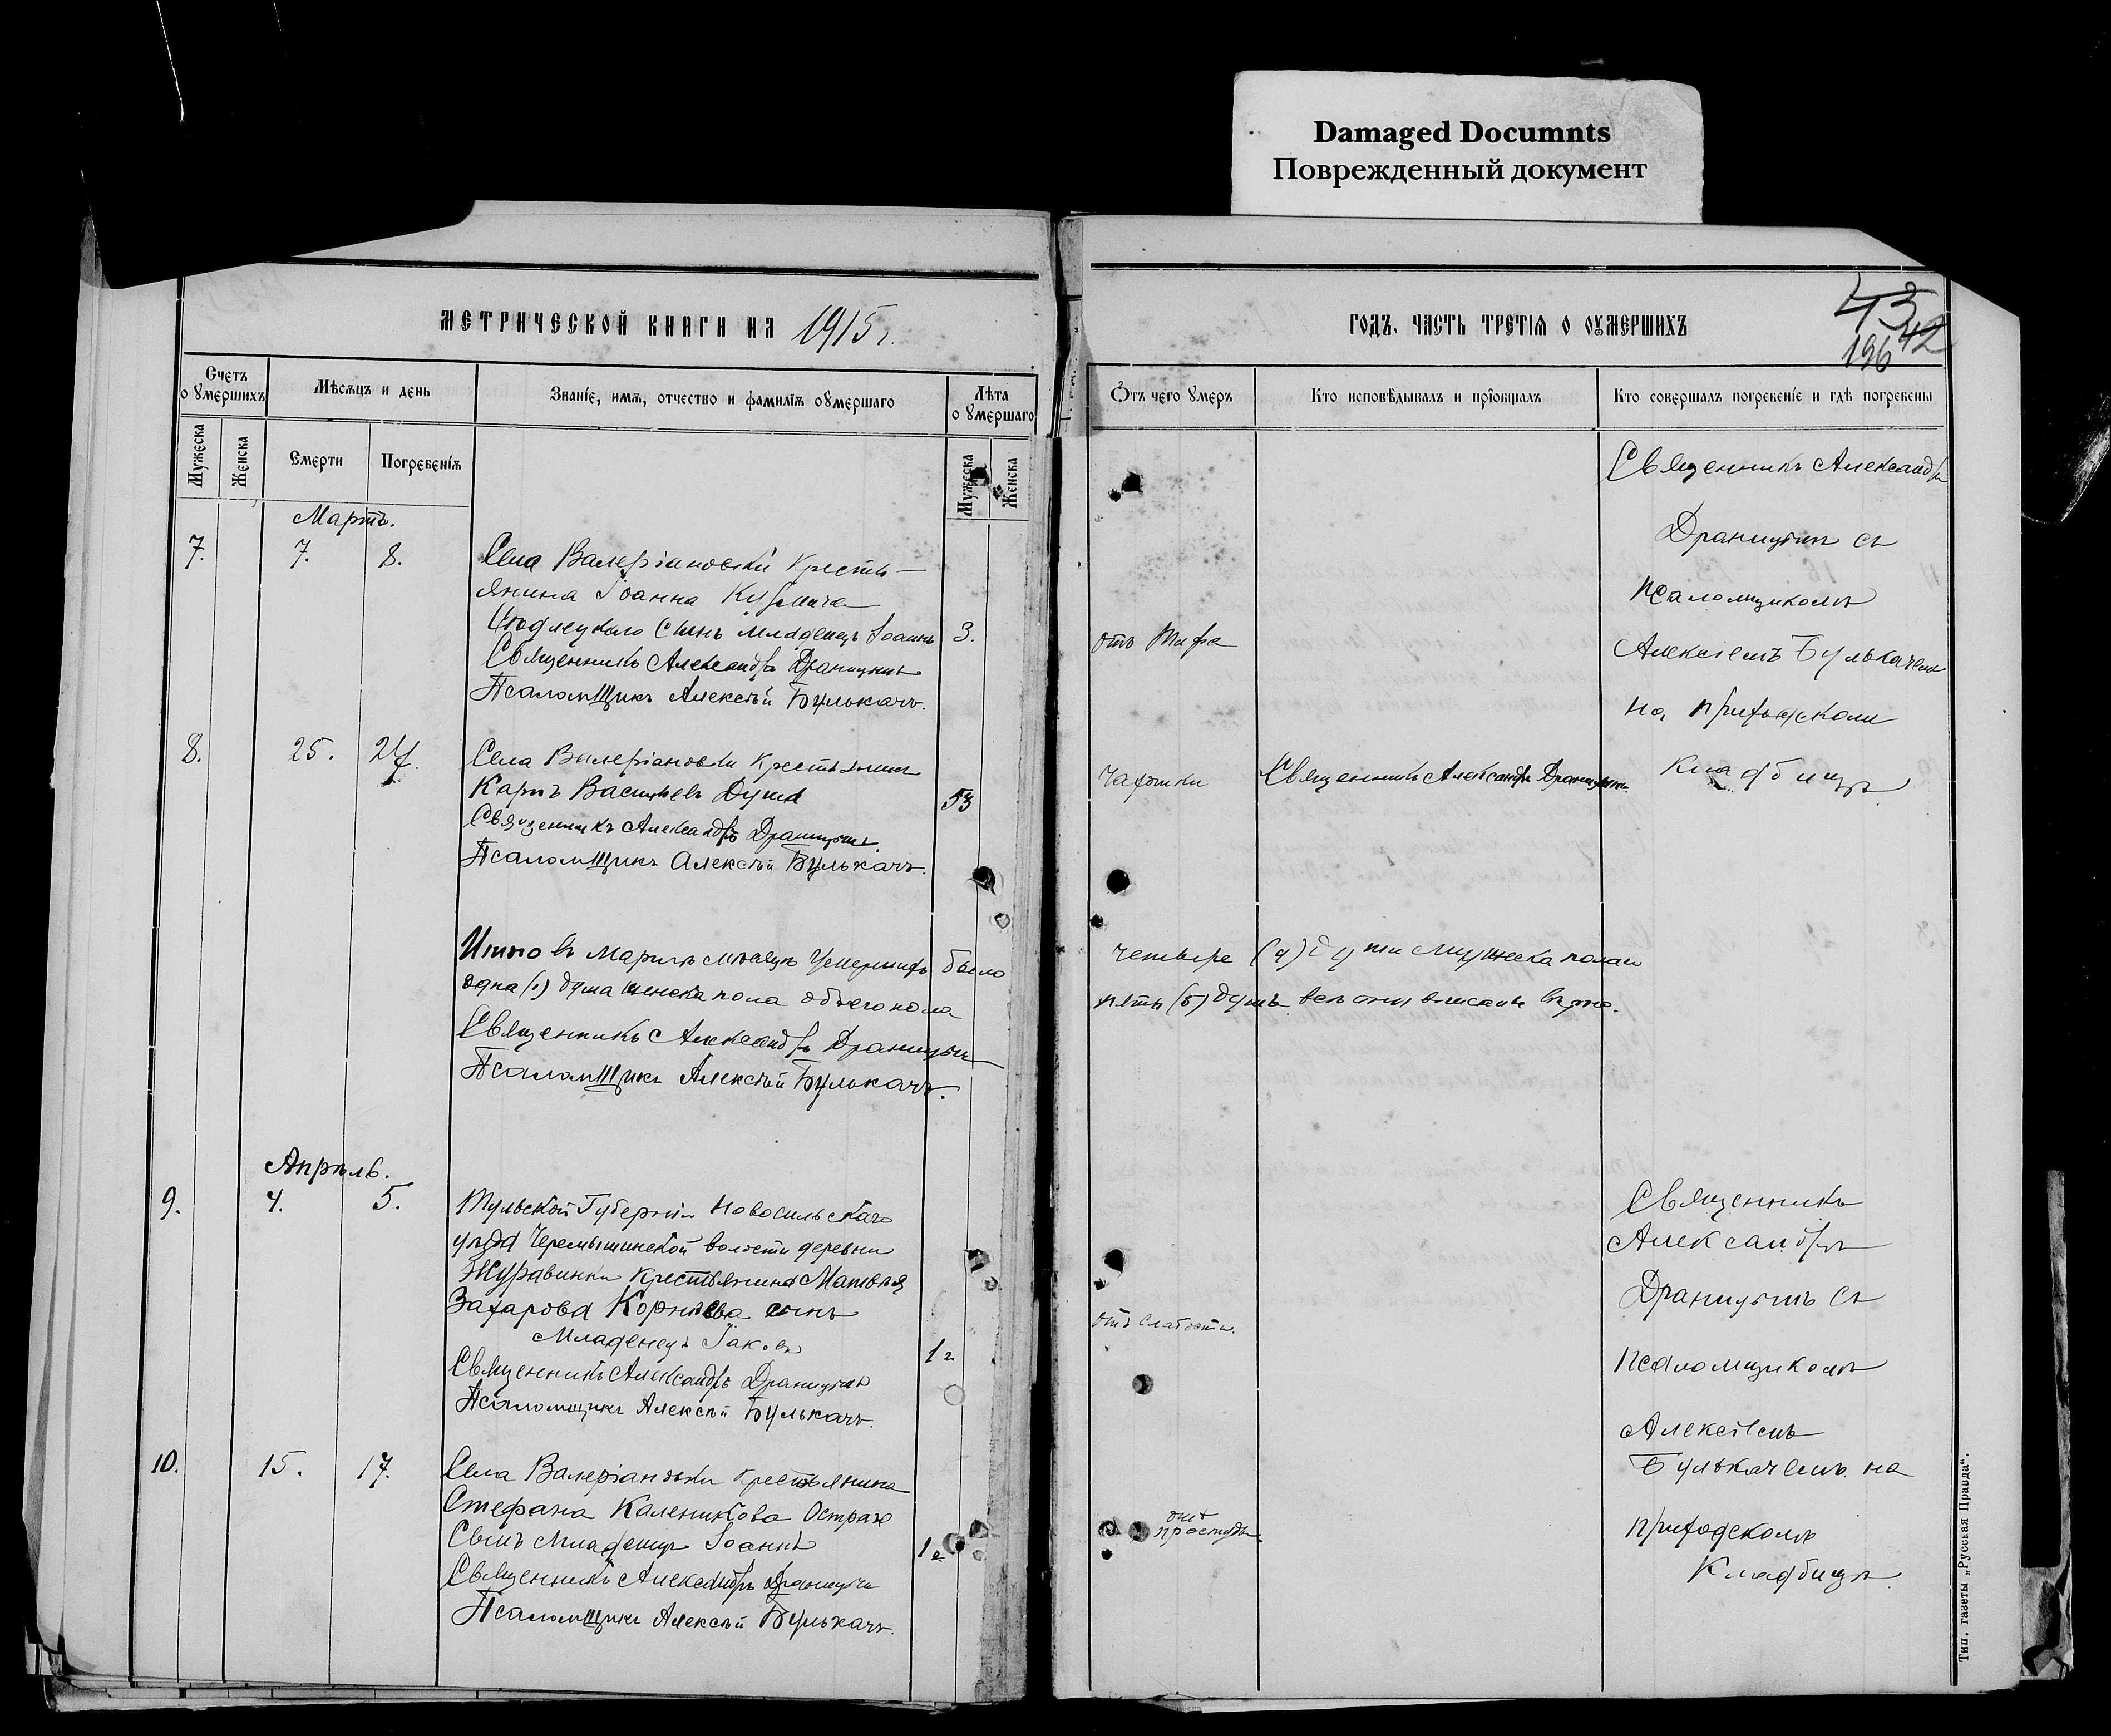 Damaged Documnts
Поврежденный документ
МЕТРИЧЕСКОЙ КНИГИ НА 1915 г.
Счетъ о умершихъ
Мѣсяцъ и день
Званіе, имя, отчество и фамилія оумершаго
Лѣта о умершаго
Мужеска
Женска
Смерти
Погребенія
Мужеска
Женска
Мартъ.
7. 7. 8.
Села Валеріановки Кресть-
янина Іоанна
сынъ младенецъ Іоаннъ 3.
Священникъ Александръ Драницынъ
Псаломщикъ Алексѣй Булькачъ.
8. 25. 27.
Села Валеріановки крестьянинъ
Карпъ Васильевъ Душа 53
Священникъ Александръ Драницынъ.
Псаломщикъ Алексѣй Булькачъ.
Итого въ Мартѣ мѣсяцѣ Умершихъ было
одна (1) душа женска пола обоего пола
Священникъ Александръ Драницынъ
Псаломщикъ Алексѣй Булькачъ.
Апрѣль.
9. 4. 5.
Тульской Губерніи Новосильскаго
уѣзда Черемышинской волости деревни
Журавинки крестьянина Матвѣя
Захарова Корнѣева сынъ
Младенецъ Іаковъ 1 г.
Священникъ Александръ Драницынъ
Псаломщикъ Алексѣй Булькачъ.
10. 15. 17.
Села Валеріановки крестьянина
Стефана Каленикова
Сынъ Младенецъ Іоаннъ 1 г.
Священникъ Александръ Драницынъ
Псаломщикъ Алексѣй Булькачъ.
ГОДЪ, ЧАСТЬ ТРЕТІЯ О ОУМЕРШИХЪ
43
42
196
Отъ чего умеръ
Кто исповѣдывалъ и пріобщалъ
Кто совершалъ погребеніе и гдѣ погребены
Священникъ Александръ
Драницынъ съ
псаломщикомъ
отъ Тифа
Алексіемъ Булькачемъ
на приходскомъ
чахотки
Священникъ Александръ Драницынъ.
кладбищѣ.
четыре (4) души мужеска пола и
пять (5) душъ. всѣ они вписаны вѣрно.
Священникъ
Александръ
Драницынъ съ
отъ слабости.
псаломщикомъ
Алексіемъ
Булькачемъ на
отъ
простуды.
приходскомъ
Кладбищѣ.
Тип. газеты „Русская Правда“.